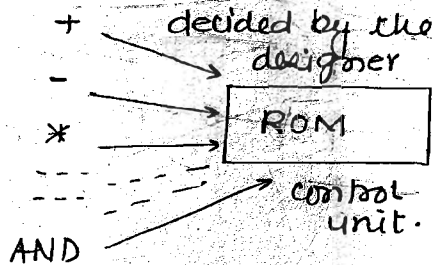 + decided by the
designer
-
ROM
*
control
unit.
AND